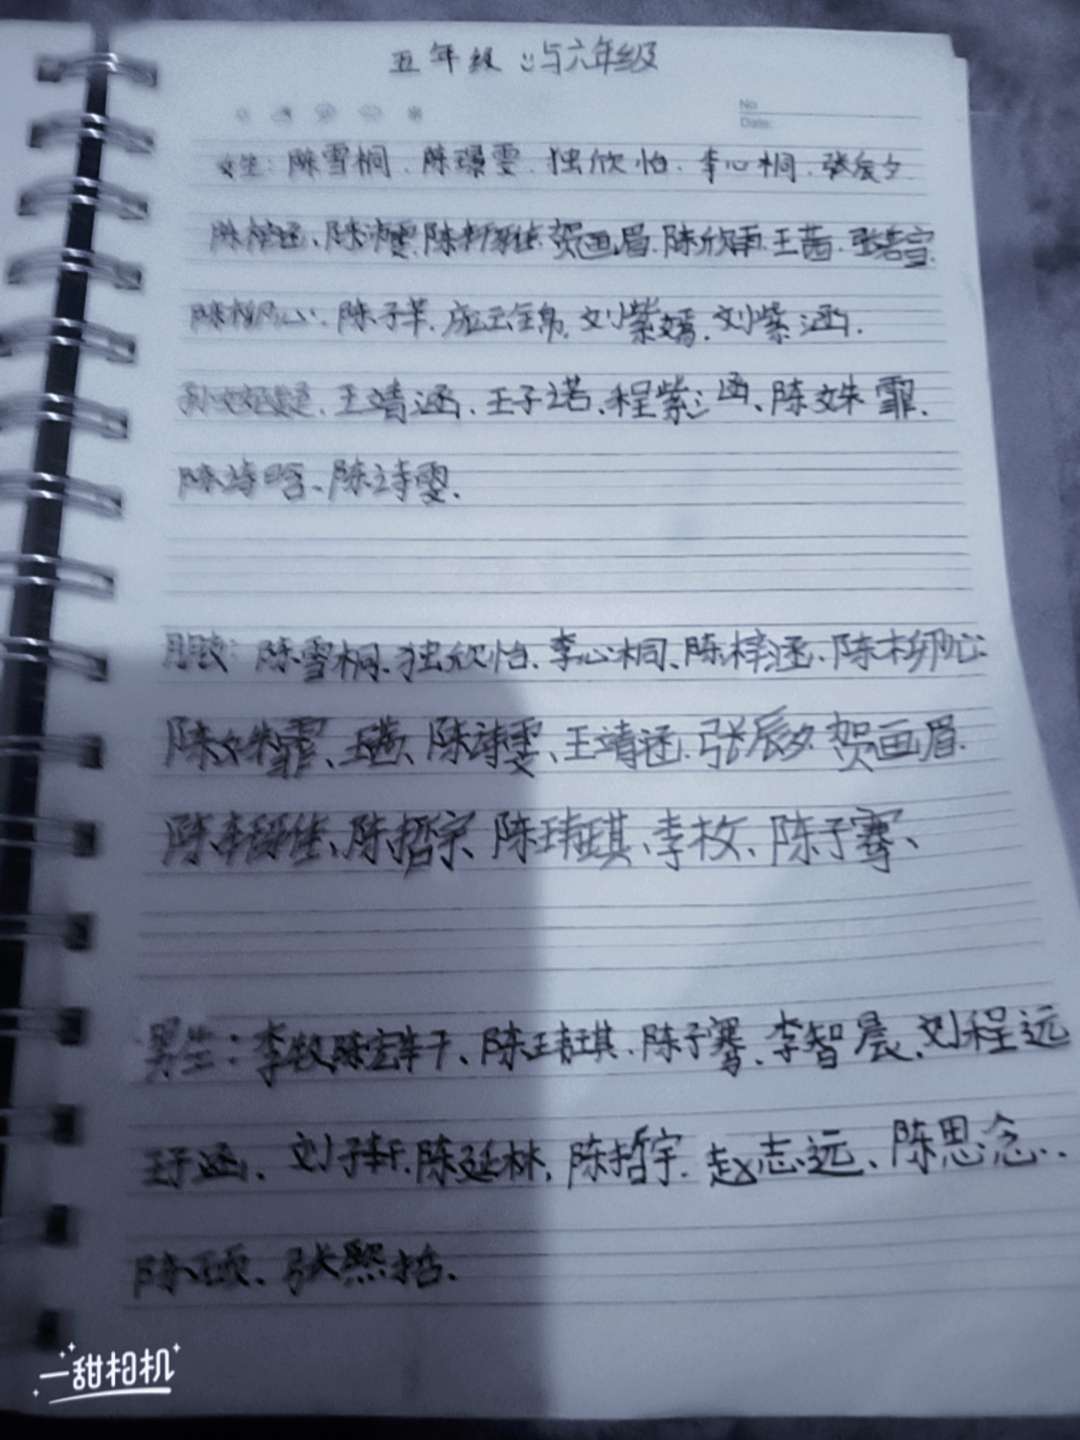 五年级 与六年级
No
Date:
女生：陈雪桐、陈璟雯、独欣怡、李心桐、张辰夕
陈梓涵、陈沛雯、陈 佳、贺画眉、陈欣雨、王茜、张若宣、
陈柳心、陈子苹、庞玉锦、刘紫嫣、刘紫涵、
王靖涵、王子诺、程紫涵、陈姝霏、
陈诗晗、陈诗雯、
朋友：陈雪桐、独欣怡、李心桐、陈梓涵、陈柳心
陈姝霏、王茜、陈诗雯、王靖涵、张辰夕、贺画眉、
陈 佳、陈哲宗、陈玮琪、李牧、陈子骞、
男生：李牧、陈宏轩、陈玮琪、陈子骞、李智晨、刘程远
王子涵、刘子轩、陈延林、陈哲宇、赵志远、陈思念、
陈硕、张熙哲、
一甜相机